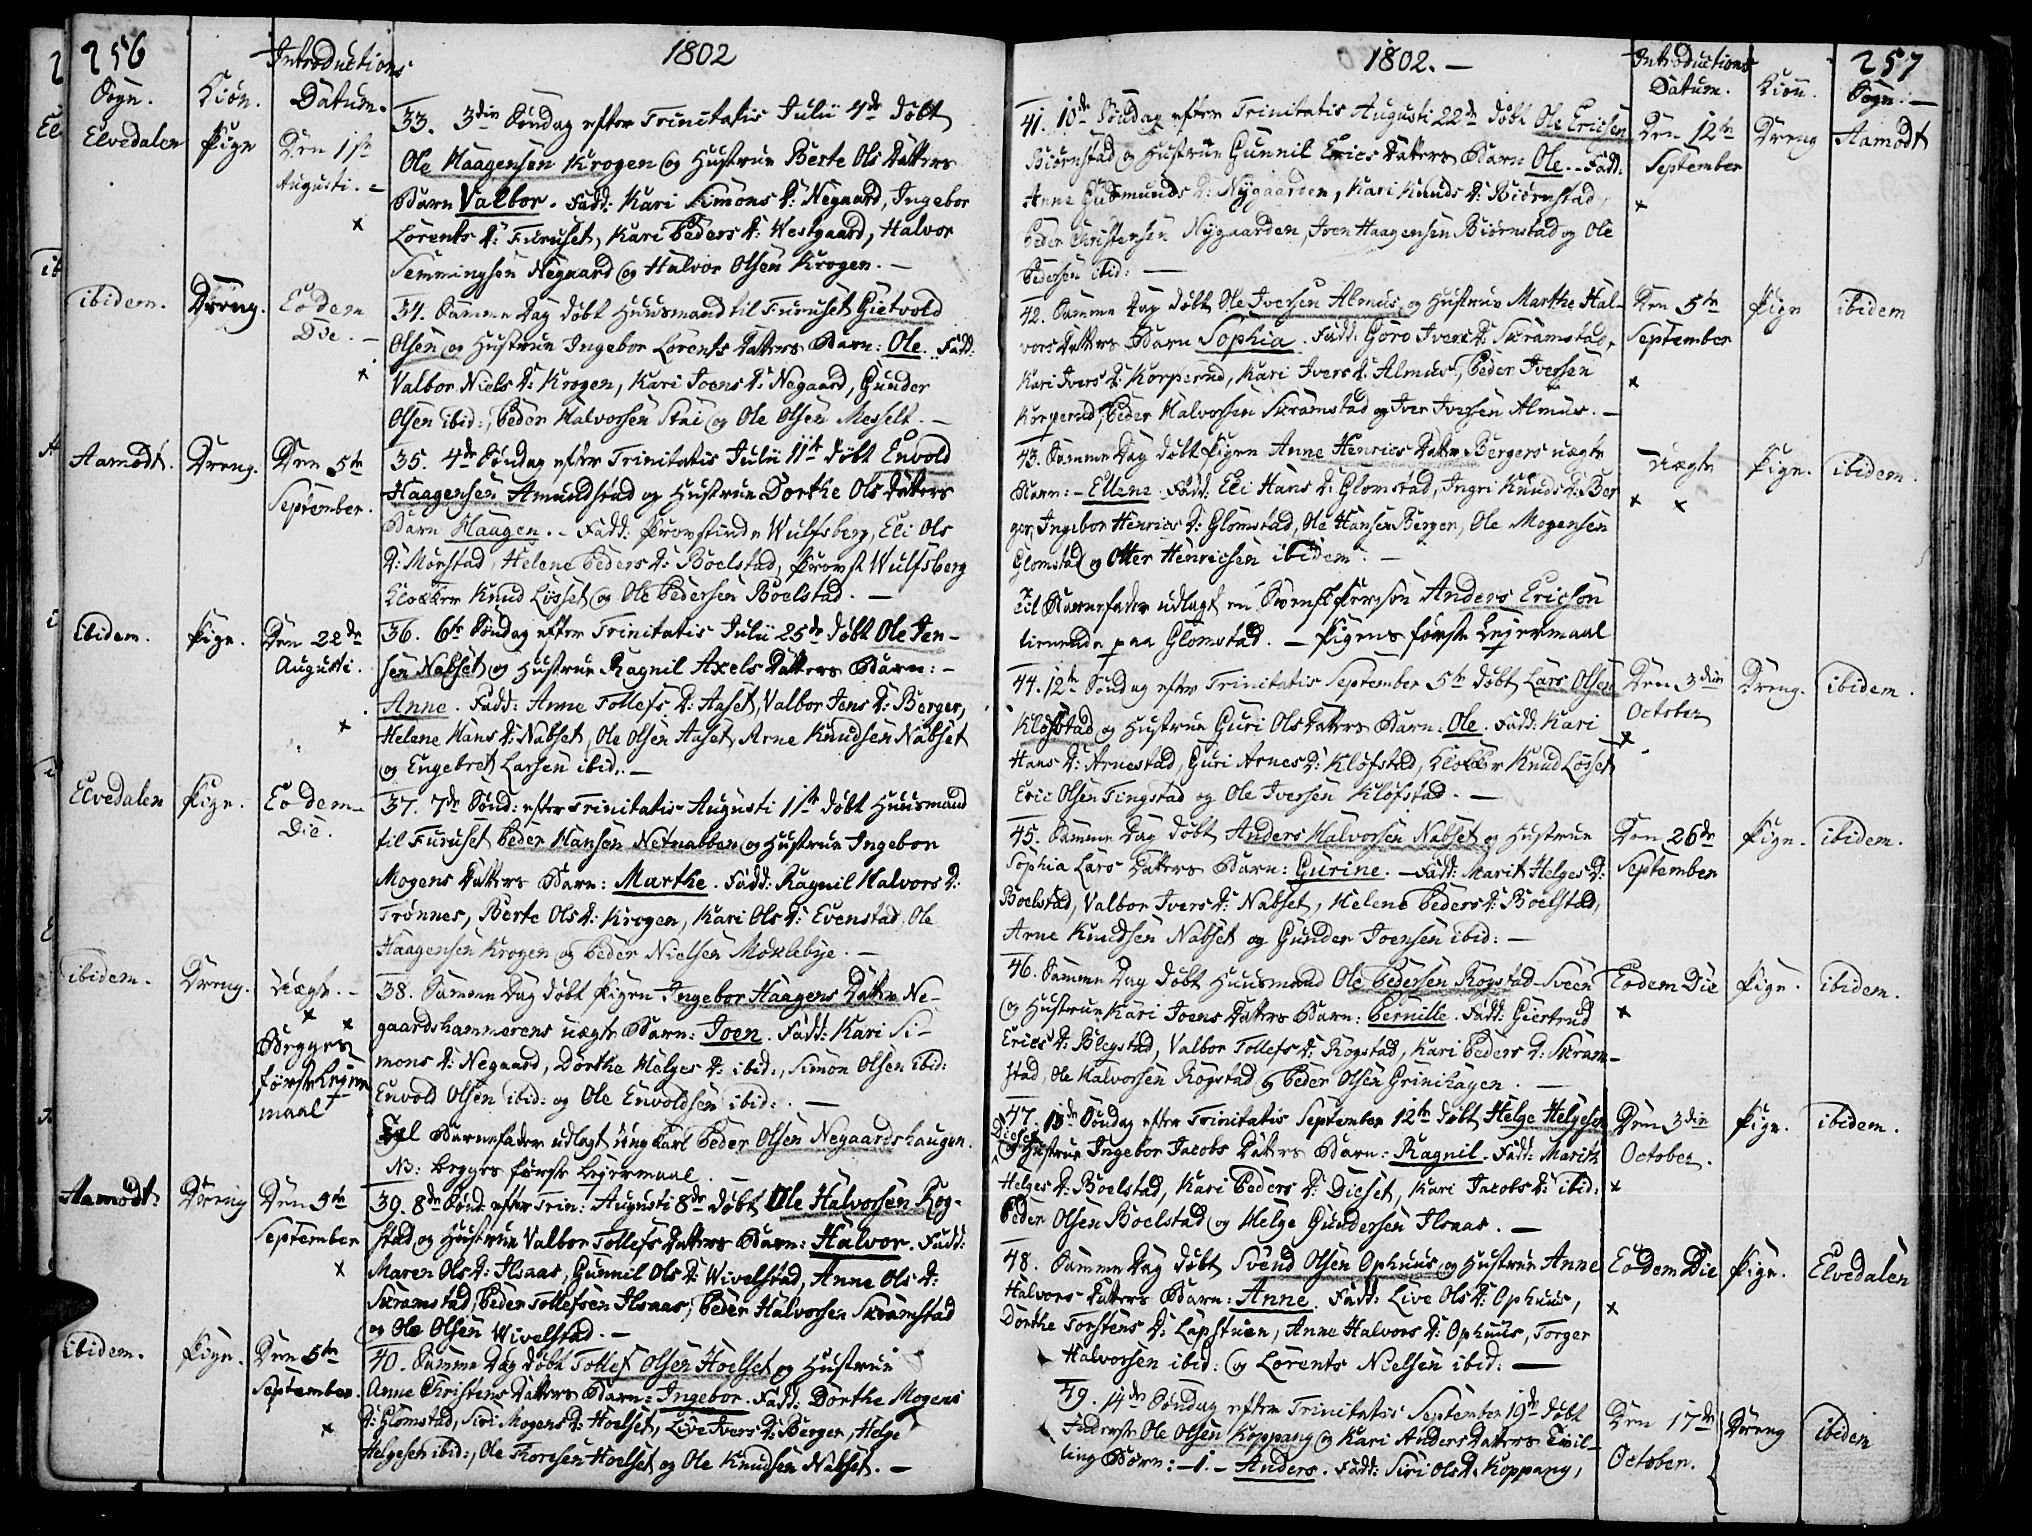 256
1802
Introductions
Sogn.
Kiøn.
Datum.
Elvedalen
Pige
Den 1ste
Augusti. -
33. 3die Søndag efter Trinitatis Julii 4de døbt
Ole Haagensen Krogen og Hustrue Berte Ols Datters
Barn Valbor. Fadd: Kari Simons D: Negaard, Ingebor
Lorents D: Furuset, Kari Peders D: Westgaard, Halvor
Semmingsen Negaard og Halvor Olsen Krogen. -
ibidem.
Dreng.
Eodem
Die. -
34. Samme Dag døbt Huusmand til Furuset Gietvold
Olsen og Hustrue Ingebor Lorents Datters Barn: Ole. Fadd:
Valbor Niels D: Krogen, Kari Joens D: Negaard, Gunder
Olsen ibid:, Peder Halvorsen Stai og Ole Olsen Messelt. -
Aamodt.
Dreng.
Den 5te
September.
35. 4de Søndag efter Trinitatis Julii 11te døbt Envold
Haagensen Amundstad og Hustrue Dorthe Ols Datters
Barn Haagen. - Fadd: Provstinde Wulfsberg, Eli Ols
D: Morstad, Helene Peders D: Boelstad, Provst Wulfsberg
Klokker Knud Løsset og Ole Pedersen Boelstad. -
ibidem.
Pige.
Den 22de
Augusti.
36. 6te Søndag efter Trinitatis Julii 25de døbt Ole Jen-
sen Nabset og Hustrue Ragnil Axels Datters Barn: -
Anne. Fadd: Anne Tollefs D: Aaset, Valbor Jens D: Berger,
Helene Hans D: Nabset, Ole Olsen Aaset, Arne Knudsen Nabset
og Engebret Larsen ibid: -
Elvedalen
Pige.
Eodem
Die.
37. 7de Sønd: efter Trinitatis Augusti 1ste døbt Huusmand
til Furuset Peder Hansen Netnabben og Hustrue Ingebor
Mogens Datters Barn: Marthe. Fadd: Ragnil Halvors D:
Trønnes, Berte Ols D: Krogen, Kari Ols D: Evenstad, Ole
Haagensen Krogen og Peder Nielsen Moklebye. -
ibidem.
Dreng.
Uægte. -
Begges
første Lejer
maal
38. Samme Dag døbt Pigen Ingebor Haagens Datter Ne-
gaardshammerens uægte Barn: Joen. Fadd: Kari Si-
mons D: Negaard, Dorthe Helges D: ibid:, Simon Olsen ibid:
Envold Olsen ibid: og Ole Envoldsen ibid: . -
Til Barnefader udlagt ung Karl Peder Olsen Negaardshaugen.
NB: begges første Lejermaal. -
Aamodt.
Dreng
Den 5te
September
39. 8de Sønd: efter Trin: Augusti 8de døbt Ole Halvorsen Rog-
stad og Hustrue Valbor Tollefs Datters Barn: Halvor. Fadd:
Maren Ols D: Ilsaas, Gunnil Ols D: Wivelstad, Anne Ols D:
Skramstad, Peder Tollefsen Ilsaas, Peder Halvorsen Skramstad
og Ole Olsen Wivelstad. -
ibidem.
Pige.
Den 5te
September.
40. Samme Dag døbt Tollef Olsen Hoelset og Hustrue
Anne Christens Datters Barn: Ingebor. Fadd: Dorthe Mogens
D: Glomstad, Siri Mogens D: Hoelset, Live Ivers D: Berger, Helge
Helgesen ibid:, Ole Thoresen Hoelset og Ole Knudsen Nabset. -
1802. -
Introductions
257
Datum.
Kiøn.
Sogn. -
41. 10de Søndag efter Trinitatis Augusti 22de døbt Ole Ericsen
Biørnstad og Hustrue Gunnil Erics Datters Barn Ole. - Fadd:
Anne Gudmunds D: Nygaarden, Kari Knuds D: Biørnstad,
Peder Christensen Nygaarden, Joen Haagensen Biørnstad og Ole
Pedersen ibid: -
Den 12te
September
Dreng
Aamodt
42. Samme Dag døbt Ole Iversen Almus og Hustrue Marthe Hal-
vors Datters Barn Sophia. Fadd: Goro Ivers D: Skramstad,
Kari Ivers D: Korperud, Kari Ivers D: Almus, Peder Iversen
Korperud, Peder Halvorsen Skramstad og Iver Iversen Almus. -
Den 5te
September
Pige
ibidem
43. Samme Dag døbt Pigen Anne Henrics Datter Bergers uægte
Barn: - Ellene. Fadd: Eli Hans D: Glomstad, Ingri Knuds D: Ber
ger, Ingebor Henrics D: Glomstad, Ole Hansen Berger, Ole Mogensen
Glomstad og Otter Henricsen ibidem. -
Til Barnefader udlagt en Svensk Person Anders Ericson
tienende paa Glomstad. - Pigens første Lejermaal
Uægte
Pige.
ibidem.
44. 12te Søndag efter Trinitatis September 5te døbt Lars Olsen
Kløfstad og Hustrue Guri Ols Datters Barn: Ole. Fadd: Kari
Hans D: Arnestad, Guri Arnes D: Kløfstad, Klokker Knud Løsset
Eric Olsen Tingstad og Ole Iversen Kløfstad. -
Den 3die
October
Dreng.
ibidem.
45. Samme Dag døbt Anders Halvorsen Nabset og Hustrue
Sophia Lars Datters Barn: Gurine. - Fadd: Marit Helges D:
Boelstad, Valbor Ivers D: Nabset, Helene Peders D: Boelstad,
Arne Knudsen Nabset og Gunder Joensen ibid: -
Den 26de
September
Pige.
ibidem.
46. Samme Dag døbt Huusmand Ole Pedersen Rogstad-Sveen
og Hustrue Kari Joens Datters Barn: Pernille. Fadd: Giertrud
Erics D: Blegstad, Valbor Tollefs D: Rogstad, Kari Peders D: Skram-
stad, Ole Halvorsen Rogstad og Peder Olsen Grinihagen. -
Eodem Die
Pige.
ibidem.
47. 13de Søndag efter Trinitatis September 12te døbt Helge Helgesen
Dieset
og Hustrue Ingebor Jacobs Datters Barn: Ragnil. Fadd: Marith
Helges D: Boelstad, Kari Peders D: Dieset, Kari Jacobs D: ibid:
Peder Olsen Boelstad og Helge Gundersen Ilsaas. -
Den 3die
October.
Pige.
ibidem.
48. Samme Dag døbt Svend Olsen Ophuus og Hustrue Anne
Halvors Datters Barn: Anne. Fadd: Live Ols D: Ophuus,
Dorthe Torstens D: Lapstuen, Anne Halvors D: Ophuus, Torger
Halvorsen ibid: og Lorents Nielsen ibid: -
Eodem Die
Pige.
Elvedalen
49. 14de Søndag efter Trinitatis September 19de døbt
Inderste Ole Olsen Koppang og Kari Anders Datters Tvil-
ling Børn: - 1. - Anders. Fadd: Siri Ols D: Koppang,
Den 17de
October.
Dreng
ibidem